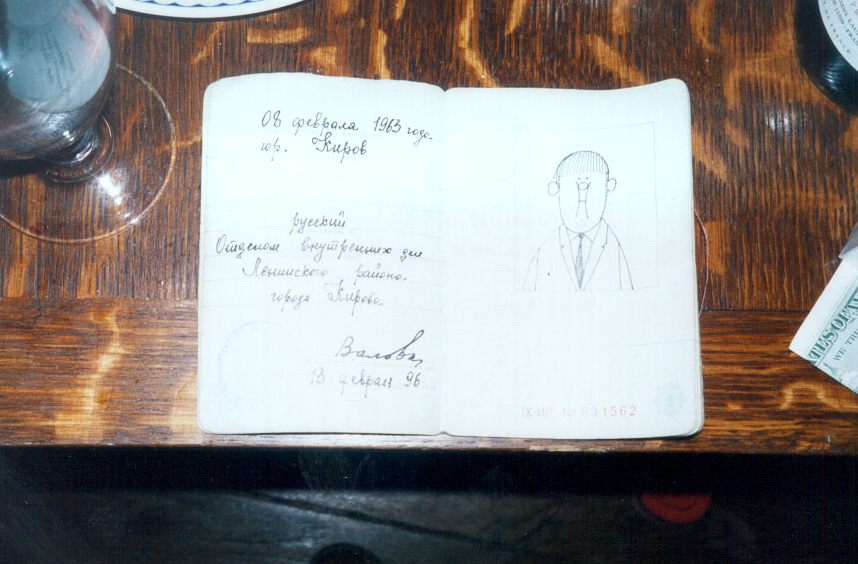 08 февраля 1963 года
гор. Киров
русский
Отделом внутренних дел
Ленинского района
города Кирова
Валова
13 феврал 96
IX-ИР № 531562
ATES OF A
WE TH
FRANCE